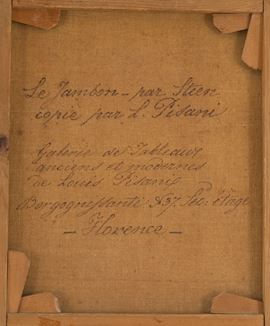 Le Jambon - par Steen
copie par L. Pisani
Galerie de Tableaux
anciens et modernes
de Louis Pisani
Borgognissanti 37. Sec: étage
- Florence -